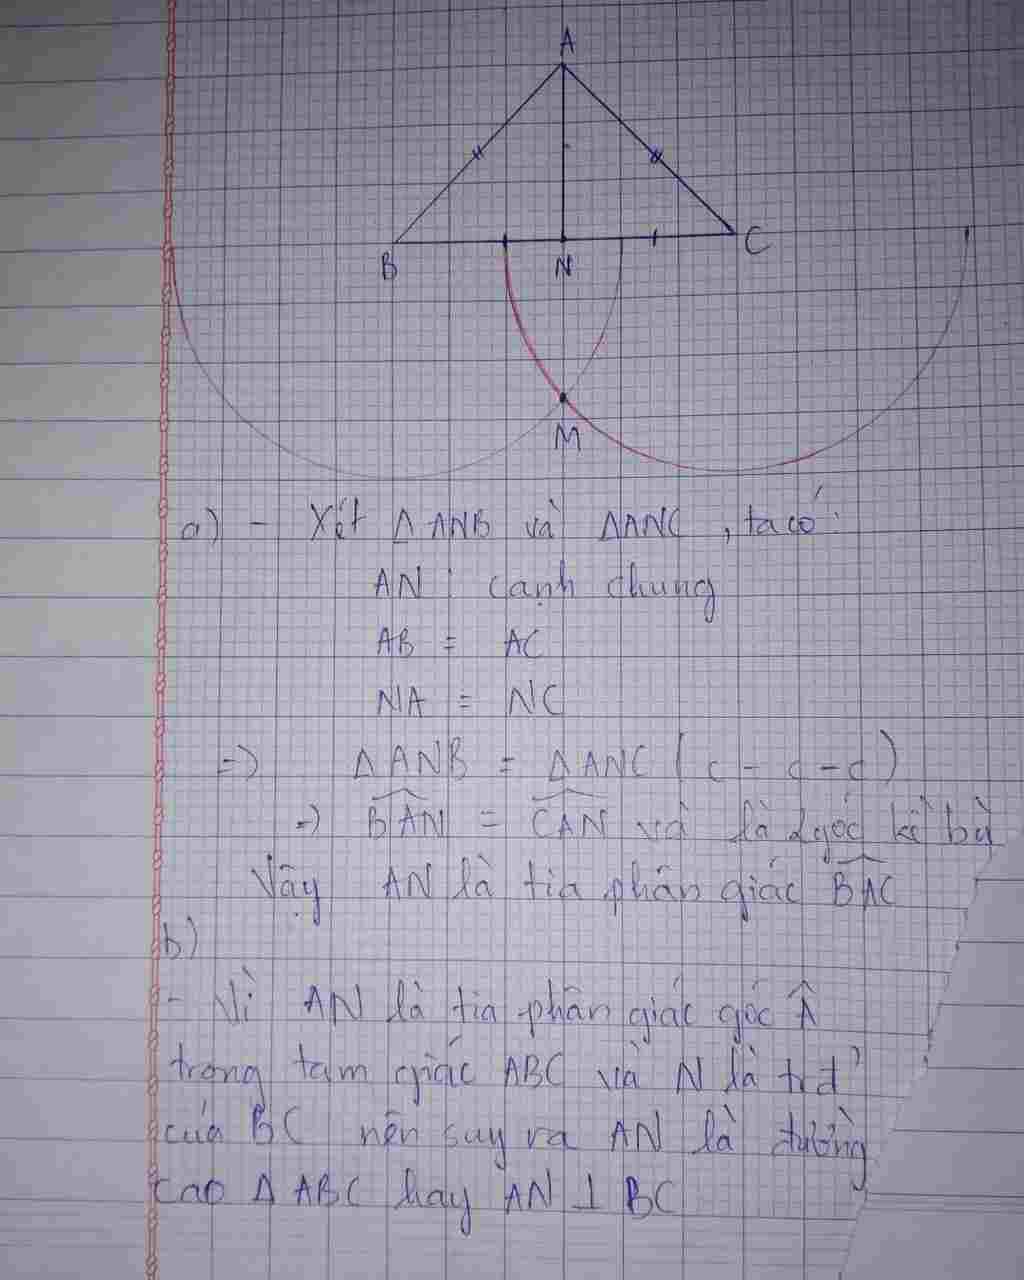 A
B
N
C
M
a) - Xét Δ ANB và ΔANC, ta có:
AN : cạnh chung
AB = AC
NA = NC
=> Δ ANB = Δ ANC (c - c - c)
=> BAN = CAN và là 2 góc kề bù
Vậy AN là tia phân giác BAC
b)
- Vì AN là tia phân giác góc Â
trong tam giác ABC và N là trđ
của BC nên suy ra AN là đường
cao Δ ABC hay AN ⊥ BC